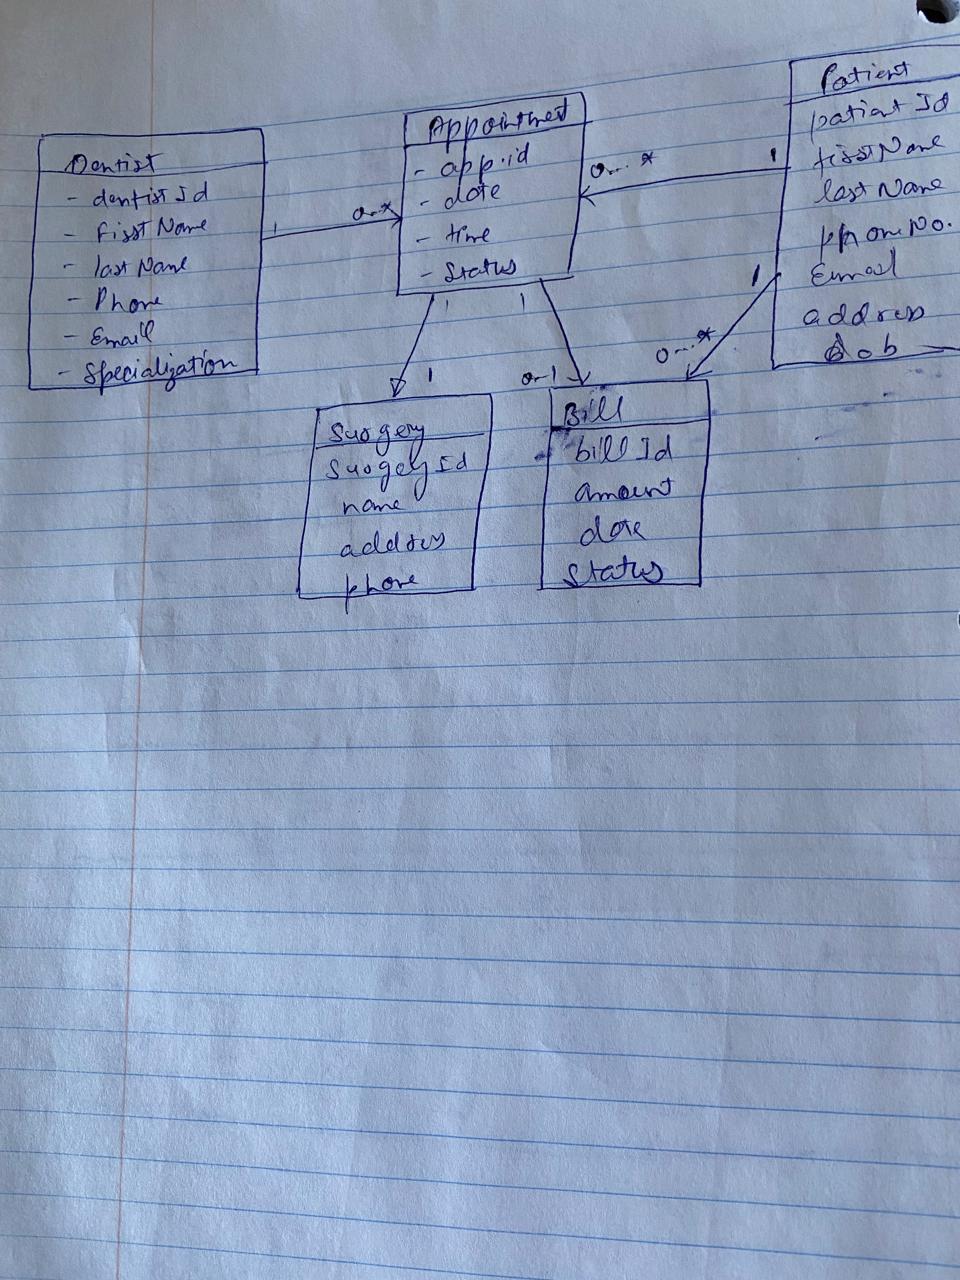 Dentist
- dentist Id
- First Name
- last Name
- Phone
- Email
- Specialization
1
0-*
Appointment
- app.id
- date
- time
- Status
0...*
1
Patient
patient Id
first Name
last Name
phone No.
Email
address
dob
1
1
1
0-1
1
0...*
Surgery
Surgery Id
name
address
phone
Bill
bill Id
amount
date
Status